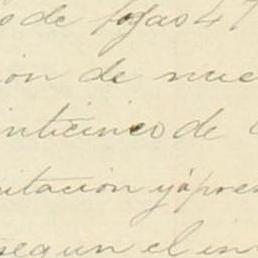 de fojas 47
ion de nue
inticinco de
itacion y apres
segun el in